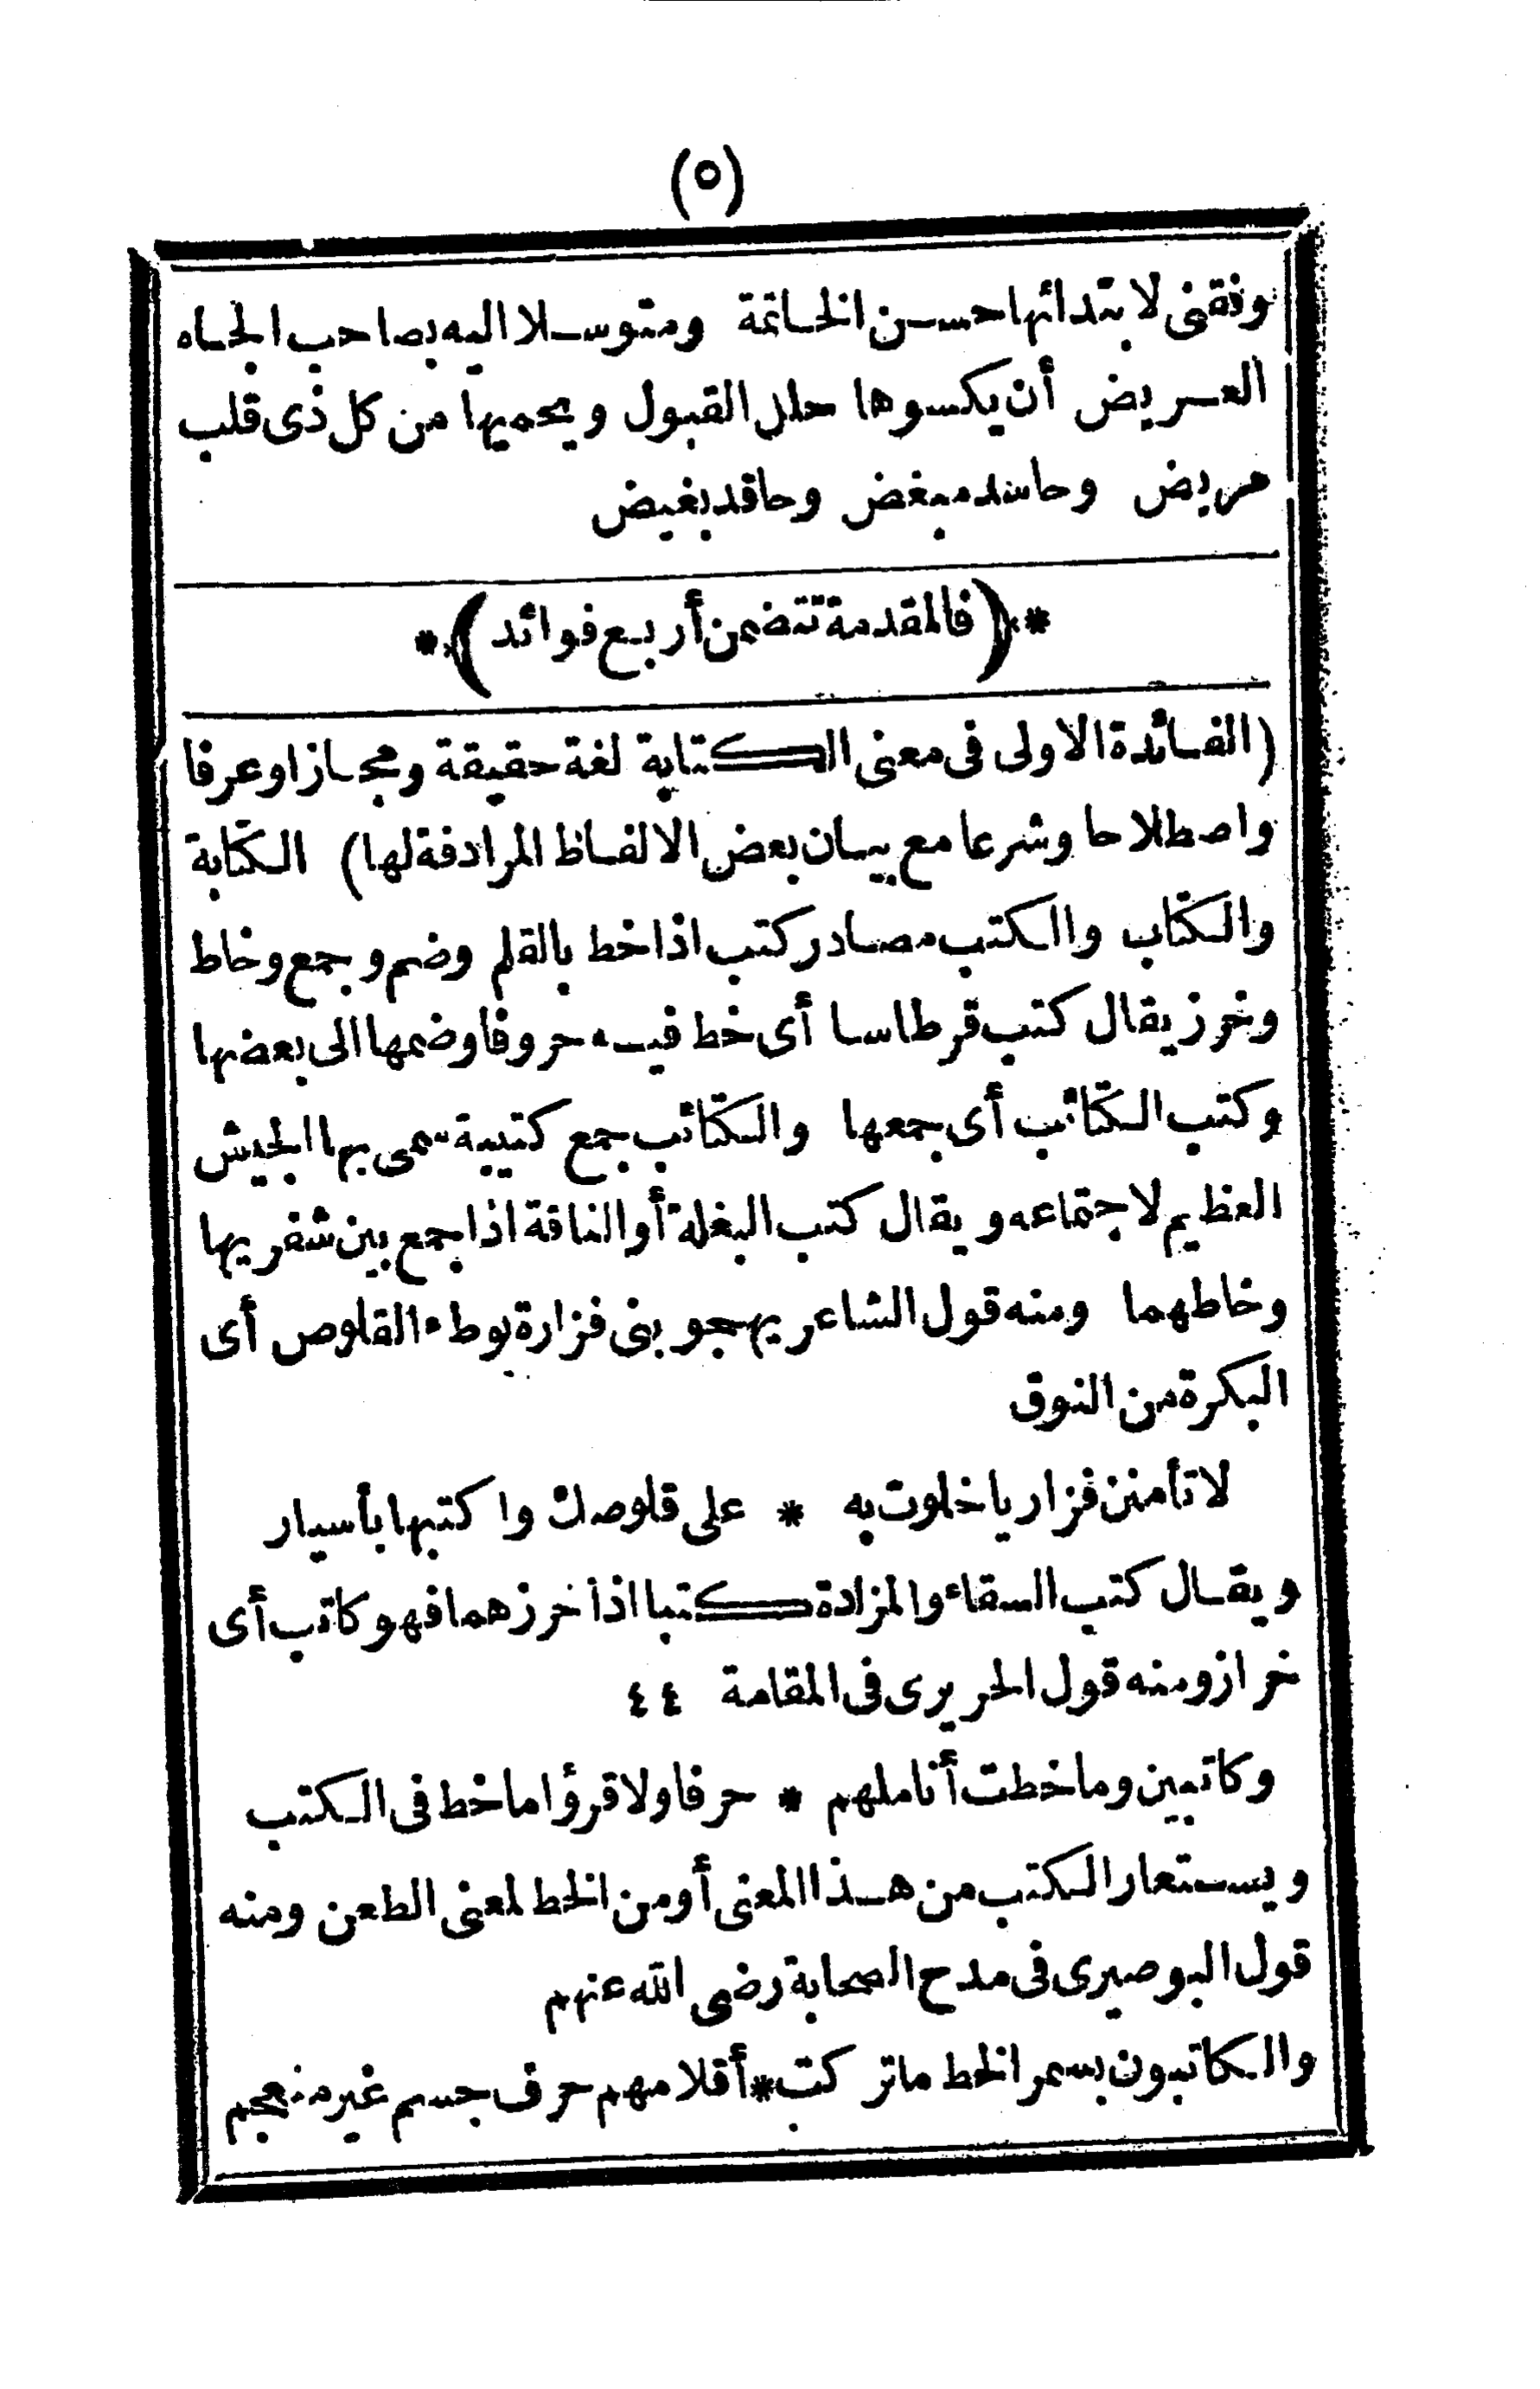 (٥)
وفقنى لابتدائها حسن الخاتمة ومتوسلا اليه بصاحب الجاه
العريض أن يكسوها حلل القبول ويحميها من كل ذى قلب
مريض وحاسد مبغض وحاقد بغيض
*(فالمقدمة تتضمن أربع فوائد)*
(الفائدة الاولى فى معنى الكتابة لغة حقيقة ومجازا وعرفا
واصطلاحا وشرعا مع بيان بعض الالفاظ المرادفة لها) الكتابة
والكتاب والكتب مصادر كتب اذا خط بالقلم وضم وجمع وخاط
وخرز يقال كتب قرطاسا أى خط فيه حروفا وضمها الى بعضها
وكتب الكتائب أى جمعها والكتائب جمع كتيبة سمى بها الجيش
العظيم لاجتماعه ويقال كتب البغلة أو الناقة اذا جمع بين شفريها
وخاطهما ومنه قول الشاعر يهجو بنى فزارة بوطء القلوص أى
البكرة من النوق
لا تأمنن فزاريا خلوت به * على قلوصك واكتبها بأسيار
ويقال كتب السقاء والمزادة كتبا اذا خرزهما فهو كاتب أى
خراز ومنه قول الحريرى فى المقامة ٤٤
وكاتبين وما خطت أناملهم * حرفا ولا قرؤا ما خط فى الكتب
ويستعار الكتب من هذا المعنى أو من الخط لمعنى الطعن ومنه
قول البوصيرى فى مدح الصحابة رضى الله عنهم
والكاتبون بسمر الخط ما تركت * أقلامهم حرف جسم غير منعجم